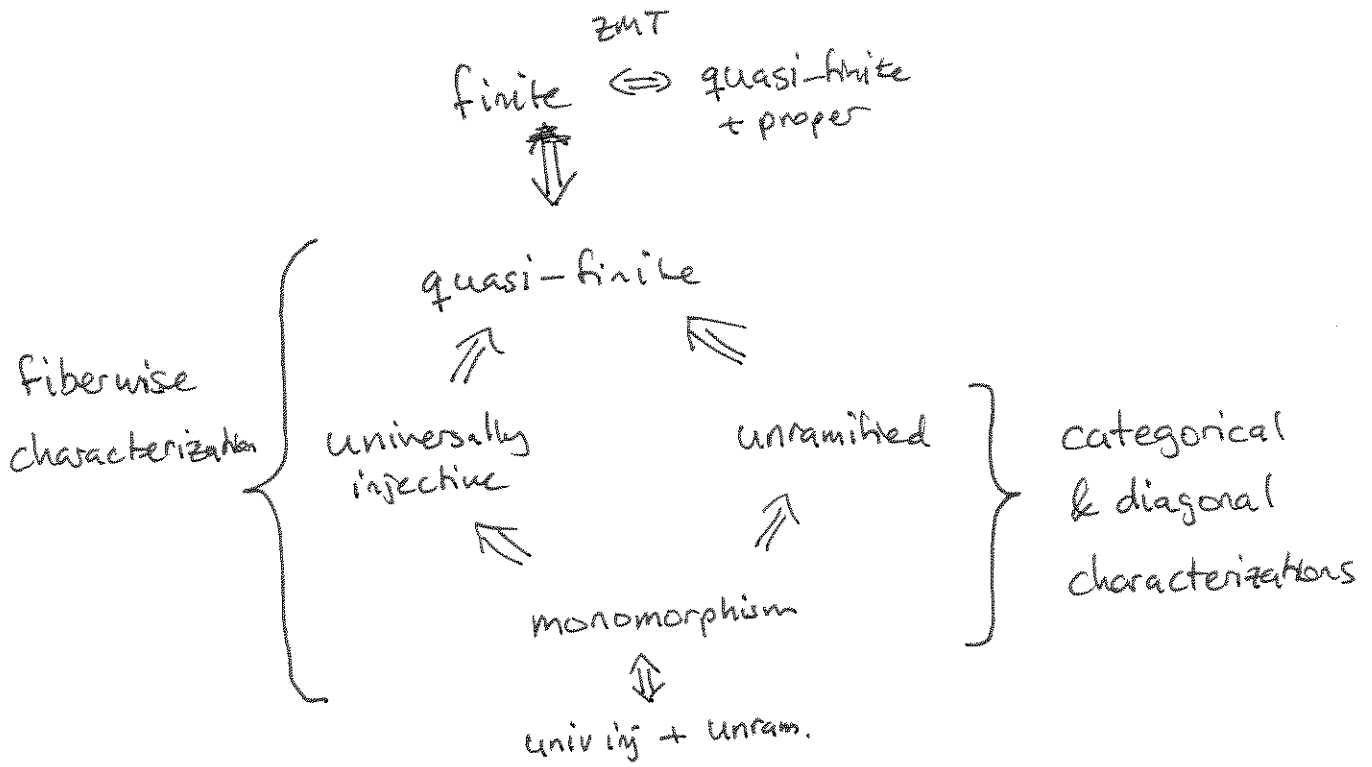 ZMT
finite ⇔ quasi-finite
+ proper
⇓
quasi-finite
⇗ ⇖
fiberwise
characterization
universally
injective
unramified
categorical
& diagonal
characterizations
⇖ ⇗
monomorphism
⇕
univ inj + unram.